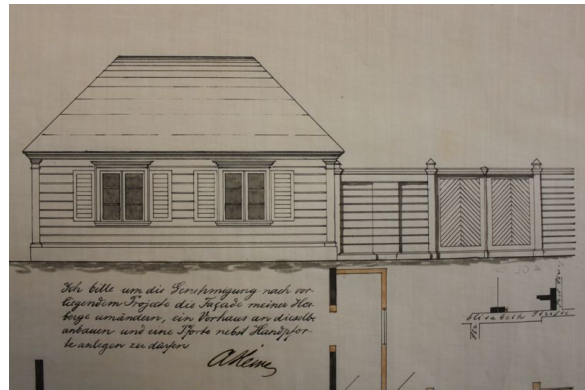 Ich bitte um die Genehmigung nach vor-
liegendem Projecte die Façade meiner Her-
berge umändern, ein Vorhaus an dieselbe
anbauen und eine Pforte nebst Handpfor-
te anlegen zu dürfen
Elisabeth Strasse